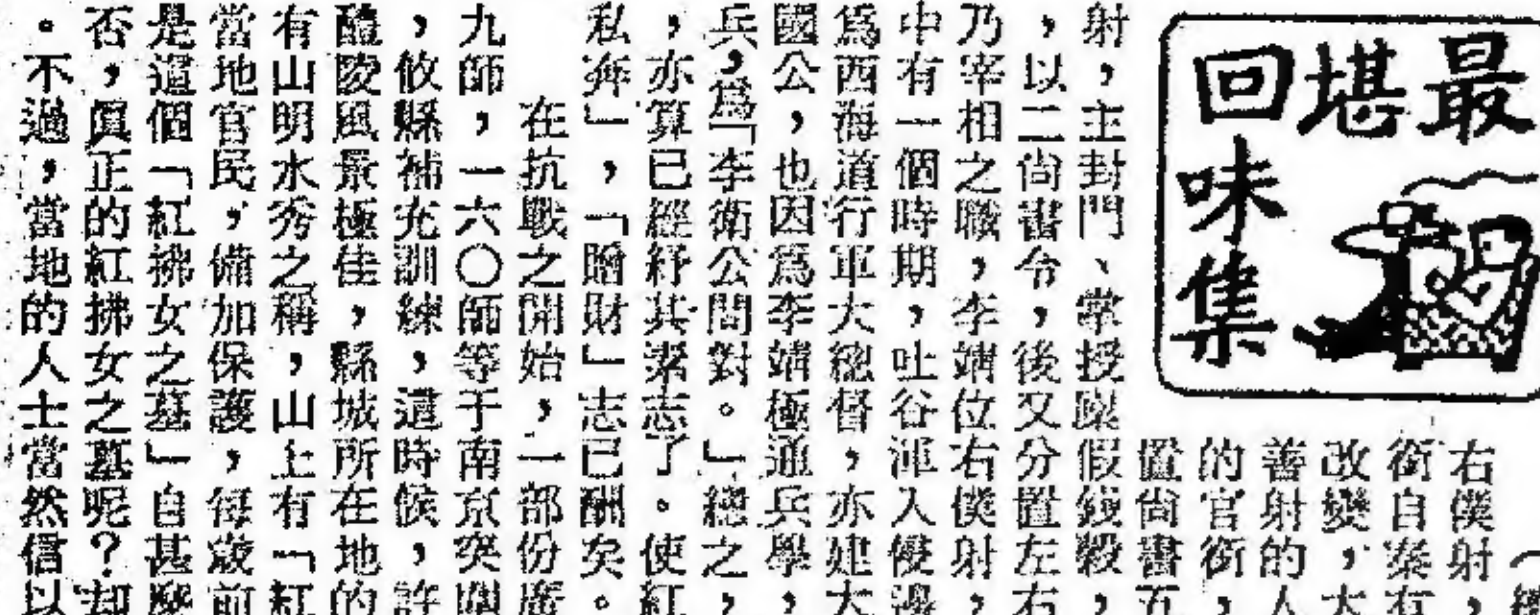 最堪
回味集
右僕射，
銜自秦有
改變，大
善射的人
的官銜，
置尚書五
射，主封門、掌授廩假錢穀，
，以二尚書令，後又分置左右
乃宰相之職，李靖位右僕射，
中有一個時期，吐谷渾入侵邊
爲西海道行軍大總督，亦建大
國公，也因爲李靖極通兵學，
兵，爲「李衛公問對。」總之，
，亦算已經紓其素志了。使紅
私奔」，「贈財」志已酬矣。
在抗戰之開始，一部份廣
九師，一六〇師等于南京突圍
，攸縣補充訓練，這時候，許
醴陵風景極佳，縣城所在地的
有山明水秀之稱，山上有「紅
當地官民，備加保護，每歲前
是這個「紅拂女之墓」自甚麼
否，眞正的紅拂女之墓呢？却
。不過，當地的人士當然信以